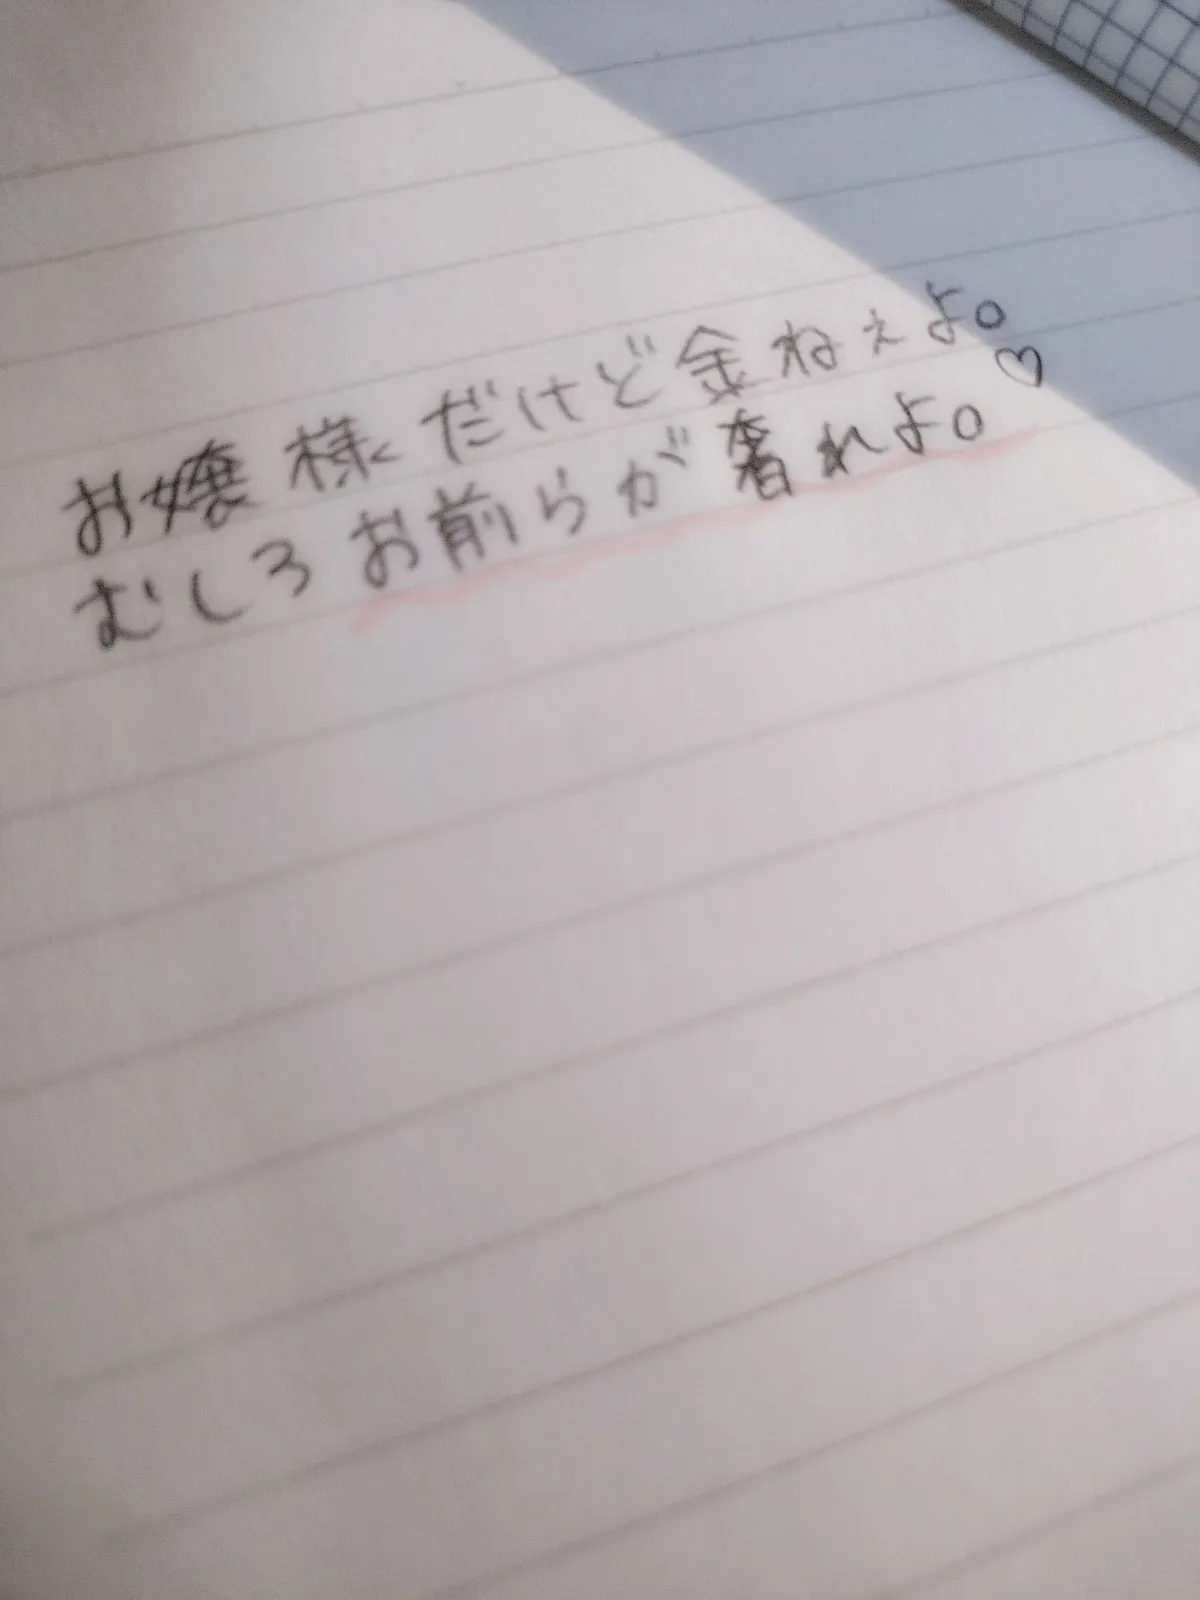 お嬢様だけど金ねぇよ。
むしろお前らが奢れよ。♡